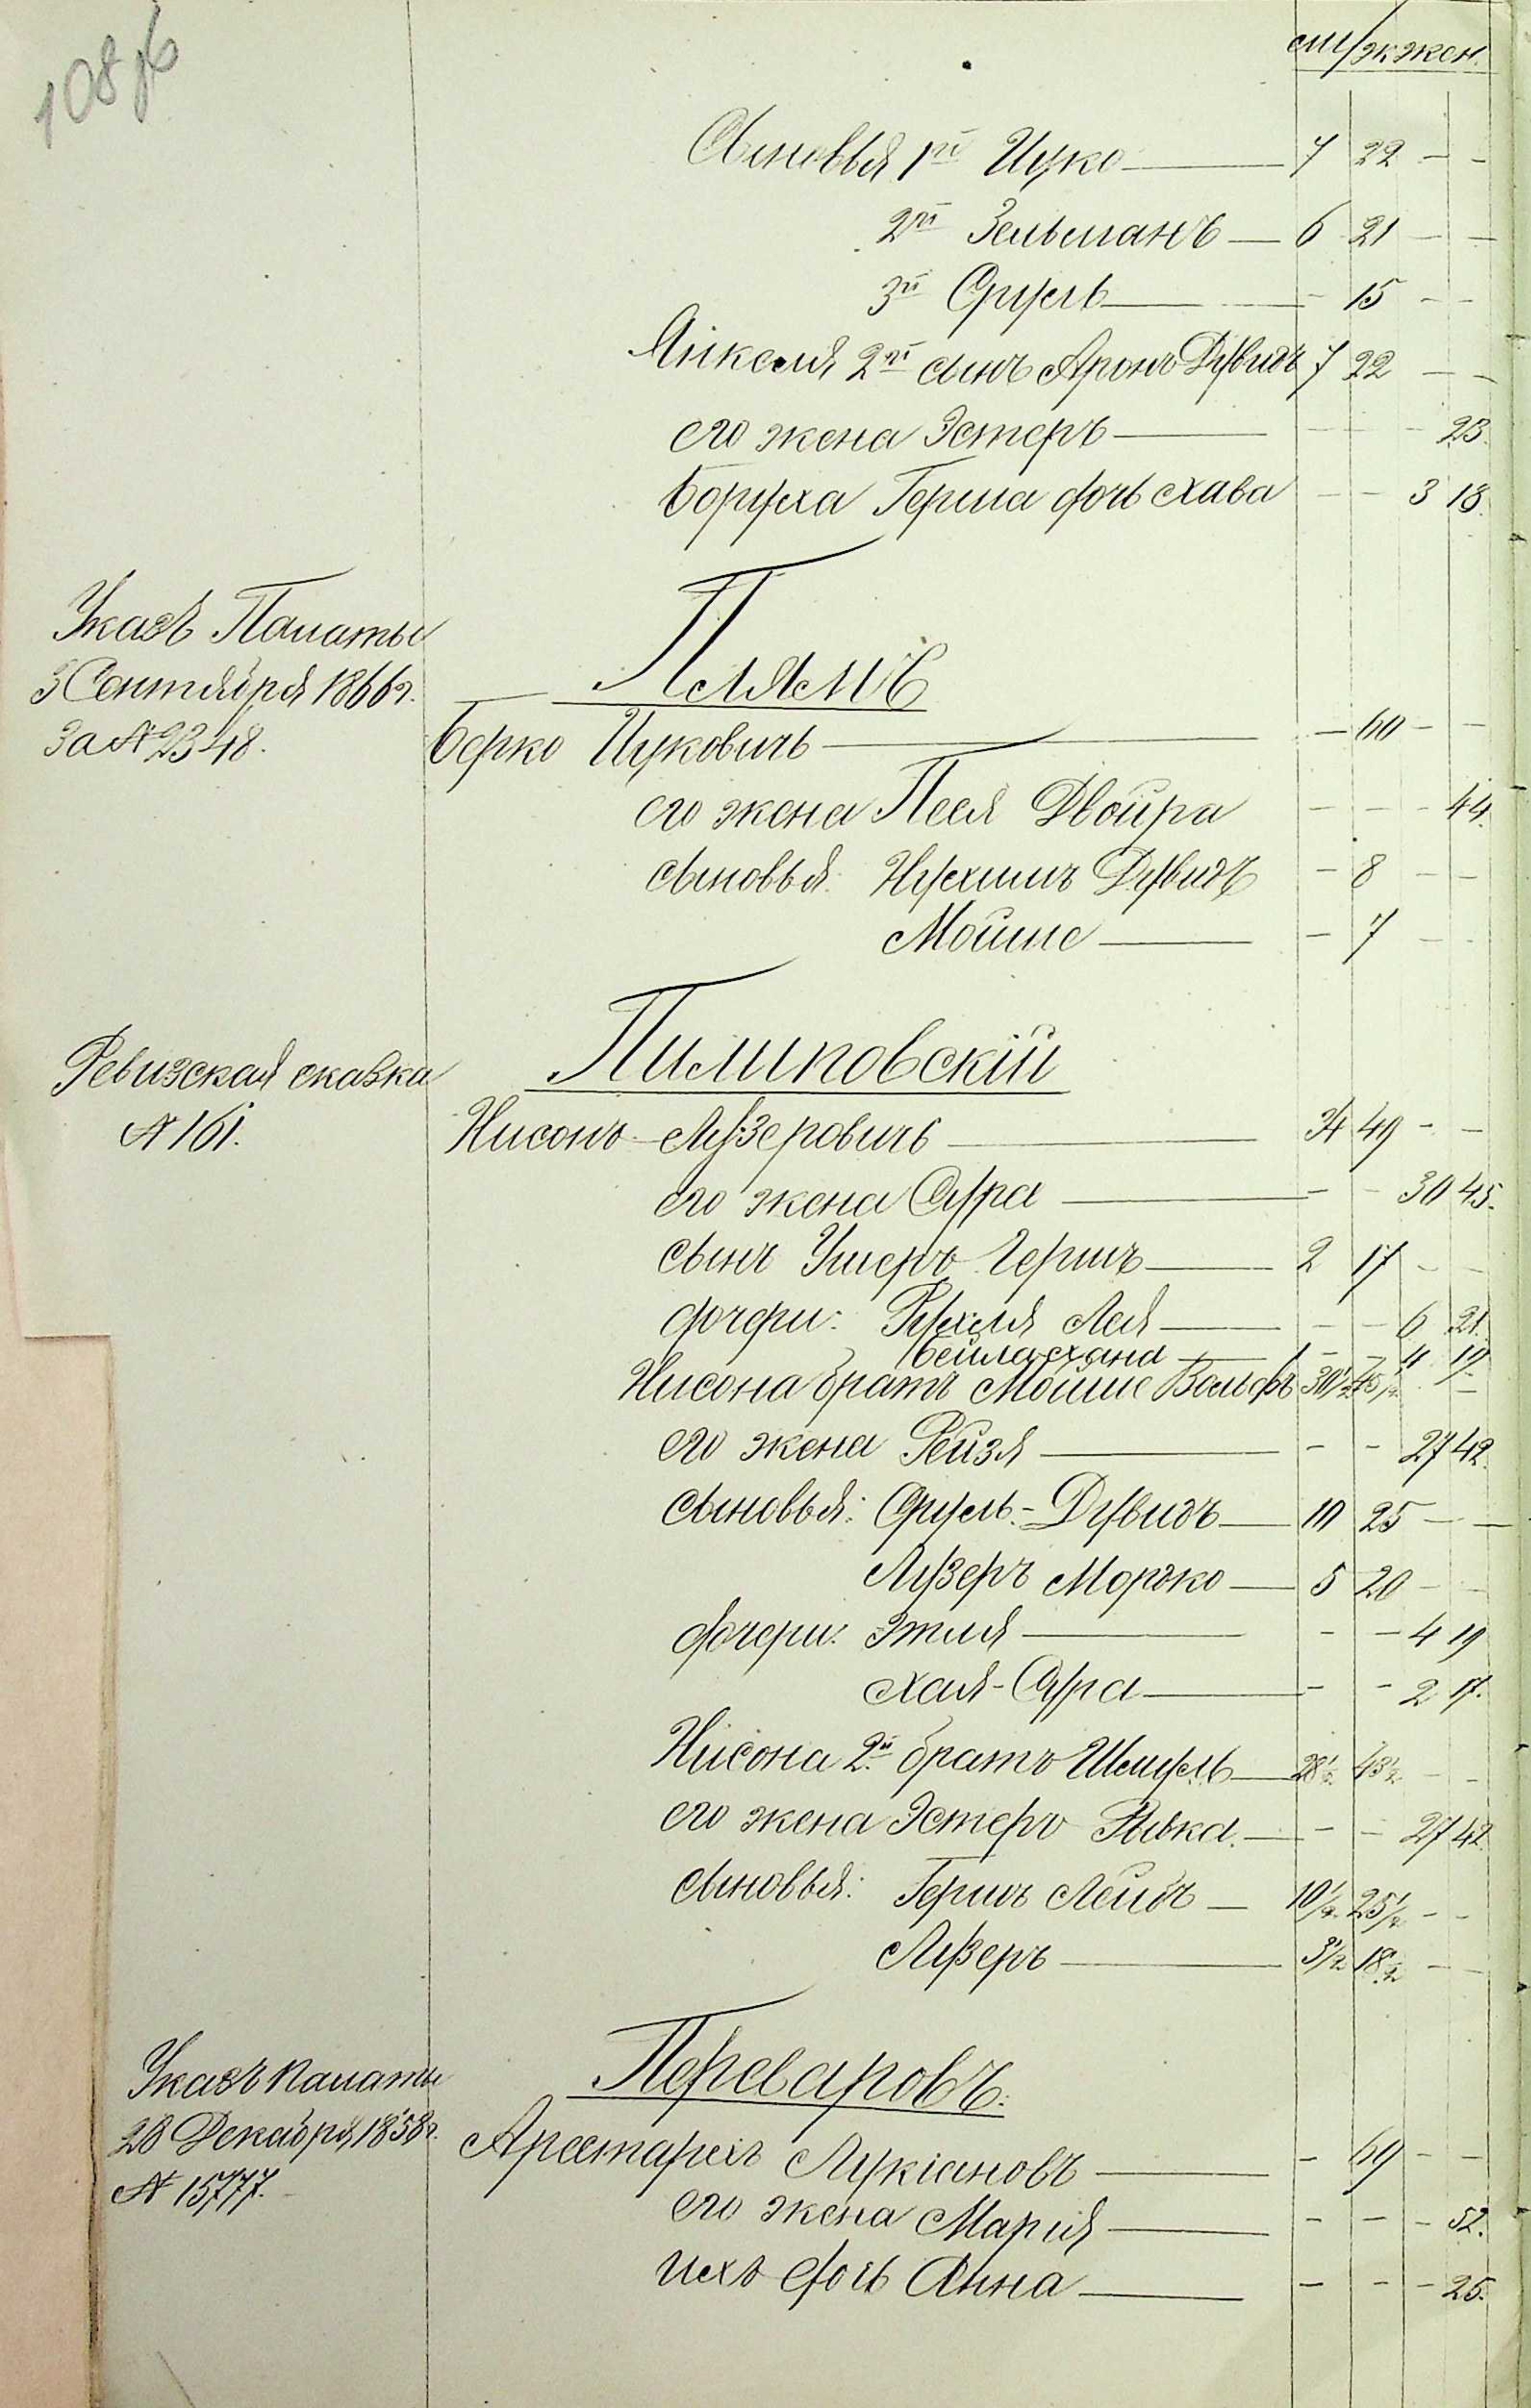 108 об
муж жен.
Сыновья 1й Ицко — 7 22 - -
2й Зельманъ — 6 21 - -
3й Сруль — - 15 - -
Янкеля 2й сынъ Аронъ Дувидъ 7 22 - -
его жена Эстеръ — - - - 23.
Боруха Герша дочь Хава - - 3 18.
Указъ Палаты
3 Сентября 1866 г.
За № 2348.
Плямъ
Берко Ицковичъ — - 60 - -
его жена Песя Двойра - - - 44.
сыновья: Нухимъ Дувидъ - 8 - -
Мойше — - 7 - -
Ревизская сказка
№ 161.
Пилиповскій
Нисонъ Лузеровичъ — 34 49 - -
его жена Сура — - - 30 45.
сынъ Ушеръ Гершъ — 2 17 - -
дочери: Рухля Лея — - - 6 21.
Бейла Хана — - - 4 19.
Нисона братъ Мойше Вольфъ 30½ 45½ - -
его жена Рейзя — - - 27 42.
сыновья: Сруль-Дувидъ — 10 25 - -
Лузеръ Мордко — 5 20 - -
дочери: Этля — - - 4 19
Хая-Сура — - - 2 17.
Нисона 2й братъ Шмуль — 28½ 43½ - -
его жена Эстеръ Ривка. — - - 27 42.
сыновья: Гершъ Лейбъ — 10½ 25½ - -
Лузеръ — 3½ 18½ - -
Указъ палаты
28 Декабря 1858 г.
№ 15777.
Переваровъ.
Арестархъ Лукіановъ — - 69 - -
его жена Марія — - - - 52.
ихъ дочь Анна — - - - 25.